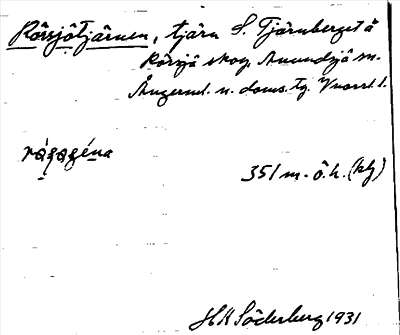 Rörsjötjärnen, tjärn S. Tjärnberget å
Rörsjö skog, Anundsjö sn.
Ångerml. n. doms. tg. Vnorrl. l.
351 m. ö. h. (kf)
HK Söderberg 1931